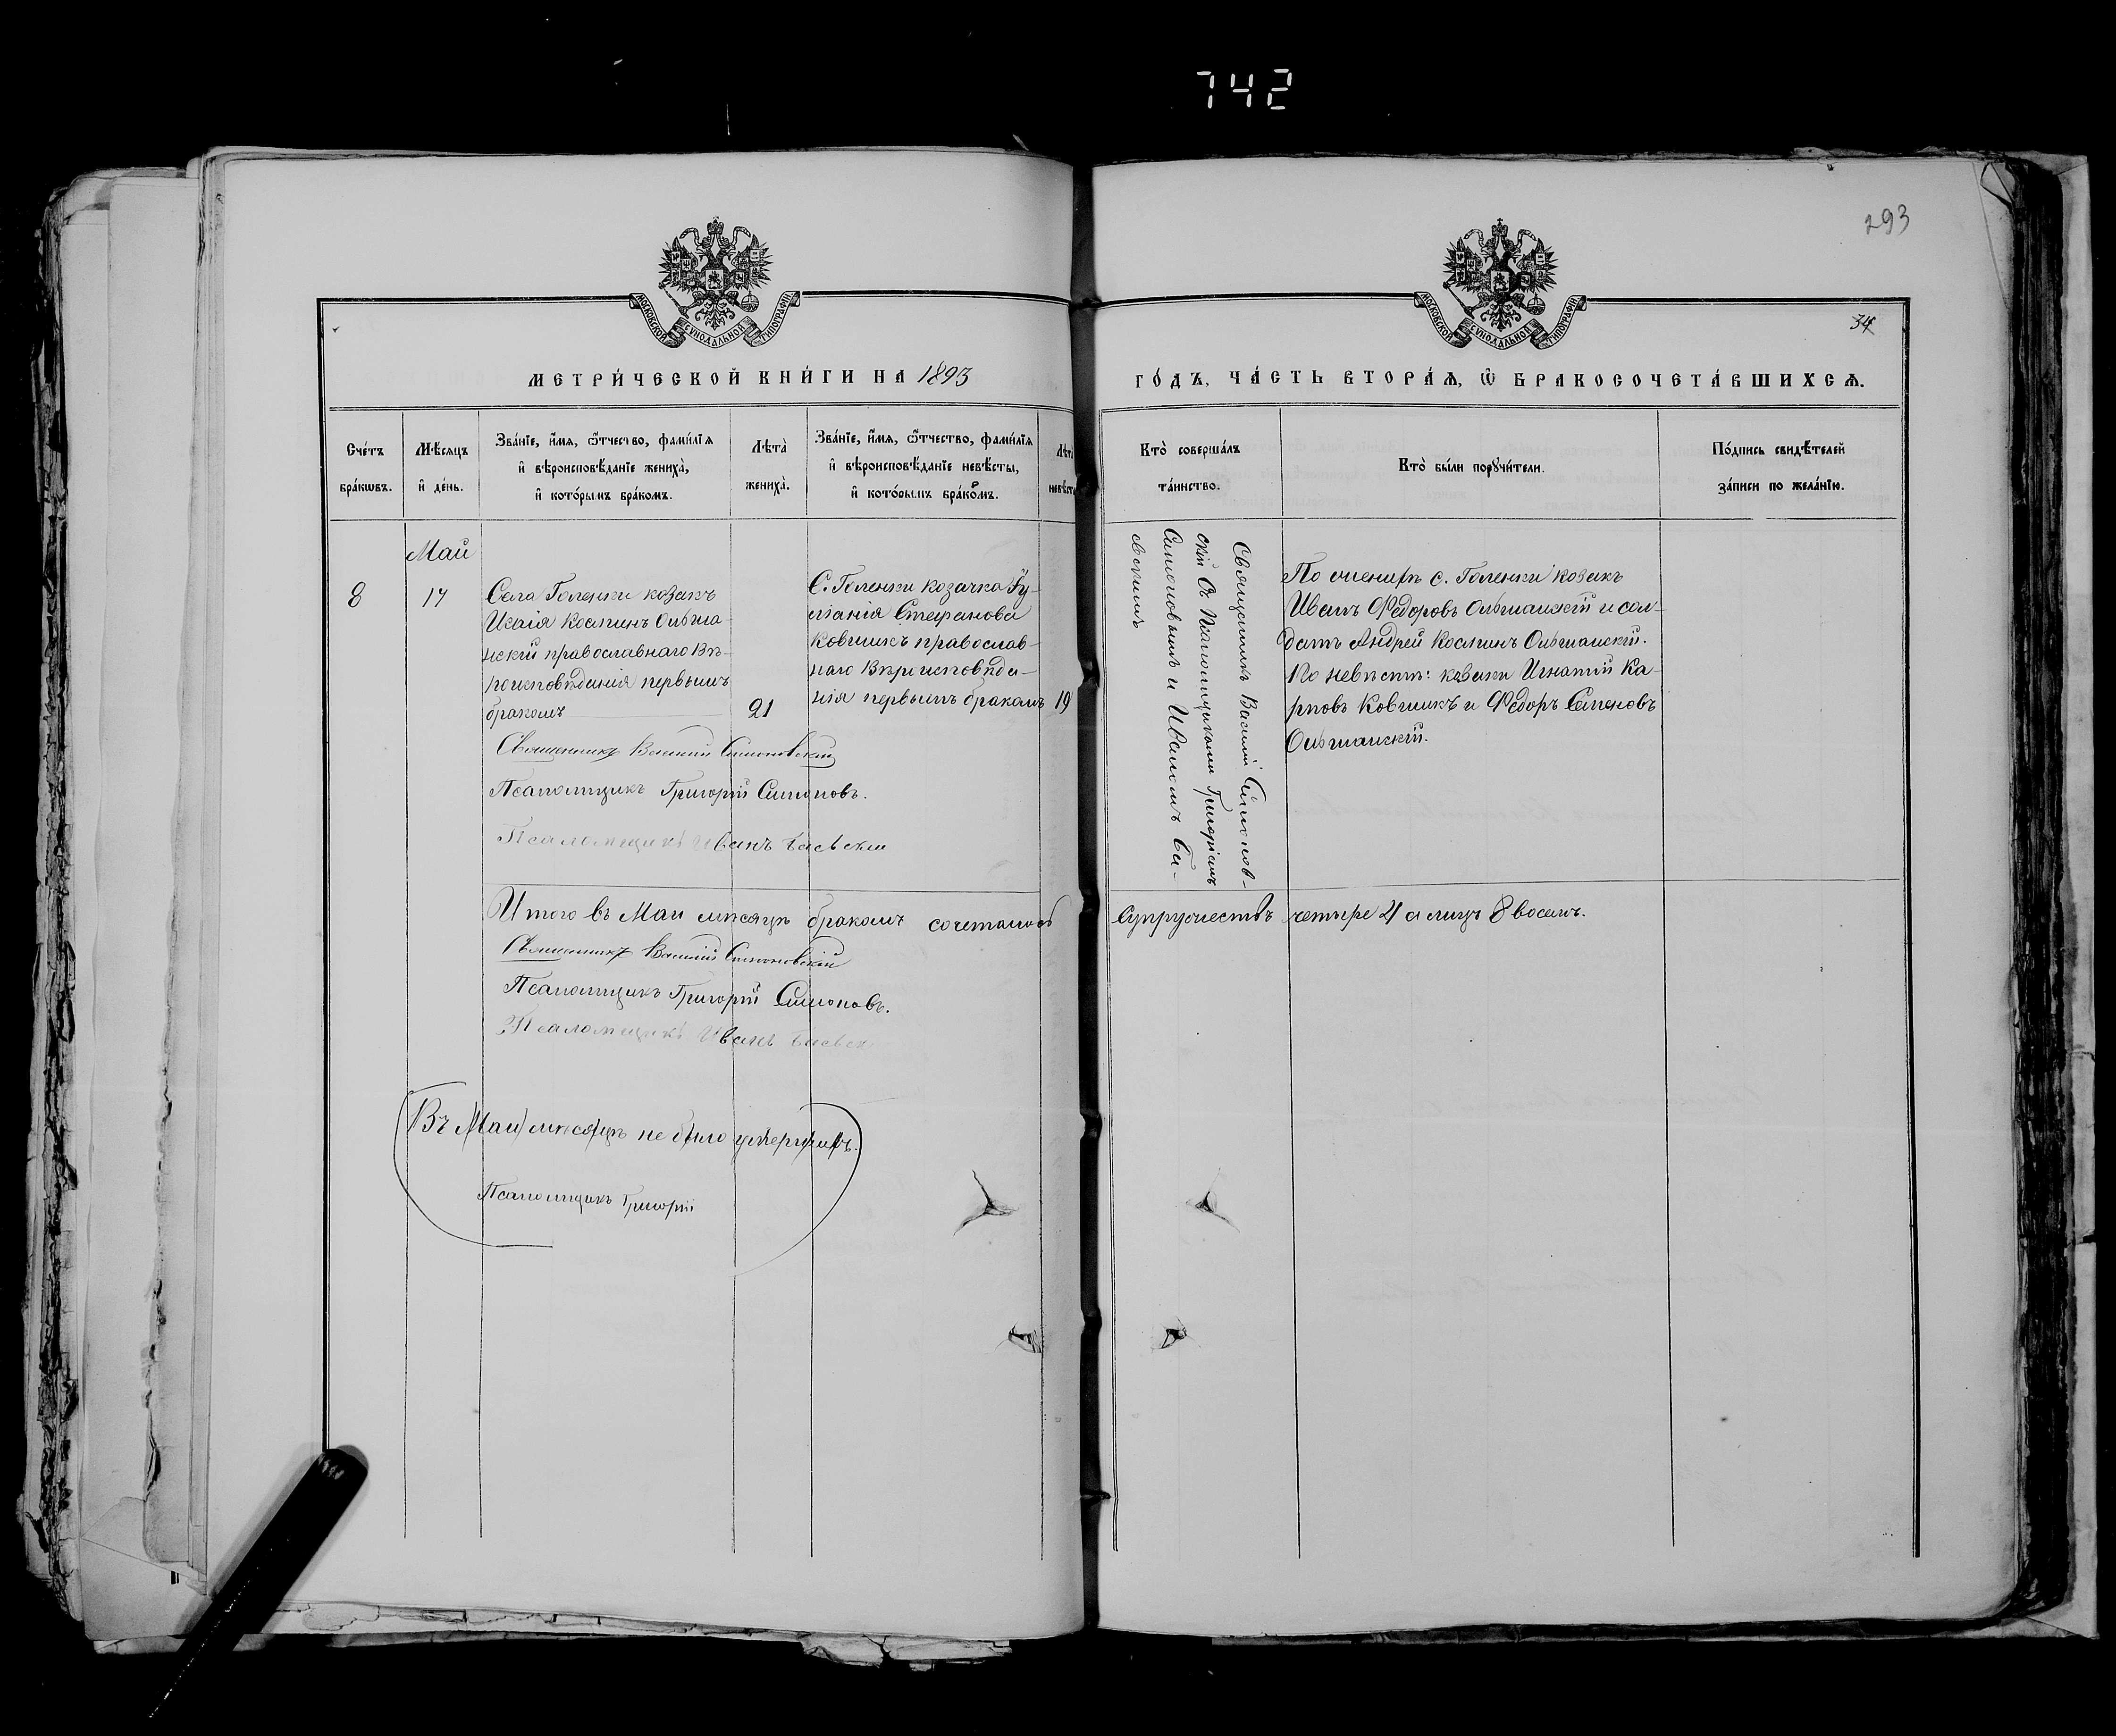 742
293
34
МОСКОВСКОЙ СѴНОДАЛЬНОЙ ТИПОГРАФІИ
МОСКОВСКОЙ СѴНОДАЛЬНОЙ ТИПОГРАФІИ
МЕТРИ́ЧЕСКОЙ КНИ́ГИ НА 1893
ГО́ДЪ, ЧА́СТЬ ВТОРА́Ѧ, Ѽ БРАКОСОЧЕТА́ВШИХСѦ.
Сче́тъ бра́кѡвъ.
Мѣ́сяцъ и҆ де́нь.
Зва́нїе, и҆́мя, ѻ҆́тчество, фамѝлїя
и҆ вѣроисповѣ́данїе жениха̀,
и҆ кото́рымъ бра́комъ.
Лѣта̀ жениха̀.
Зва́нїе, и҆́мя, ѻ҆́тчество, фамѝлїя
и҆ вѣроисповѣ́данїе невѣ́сты,
и҆ кото́рымъ бра́комъ.
Лѣта̀
невѣст
Кто̀ соверша́лъ
та́инство.
Кто̀ бы́ли порꙋчи́тели.
По́дпись свидѣ́телей
за́писи по жела́нїю.
Май
8
17
Села Голенки козакъ
Исаія Косминъ Ольша-
нскій православнаго Вѣ-
роисповѣданія первымъ
бракомъ
21
С. Голенки козачка
Стефанова
Ковшикъ православ-
наго Вѣроисповѣда-
нія первымъ бракомъ
19
Священникъ Василій Симонов-
скій Съ Псаломщиками Григоріемъ
Симоновымъ и Иваномъ Ба-
евскимъ
По женихѣ с. Голенки козакъ
Иванъ Федоровъ Ольшанскій и сол-
датъ Андрей Косминъ Ольшанскій.
По невѣстѣ: козаки Игнатій Ка-
рповъ Ковшикъ и Федоръ Семеновъ
Ольшанскій.
Священникъ Василій Симоновскій
Псаломщикъ Григорій Симоновъ.
Псаломщикъ Иванъ Баевскій
Итого въ Маи мѣсяцѣ бракомъ сочеталось супружествъ четыре 4 а лицъ 8 восемь.
Священникъ Василій Симоновскій
Псаломщикъ Григорій Симоновъ.
Псаломщикъ Иванъ Баевск
Въ Маи мѣсяцѣ не было умершихъ.
Псаломщикъ Григорій